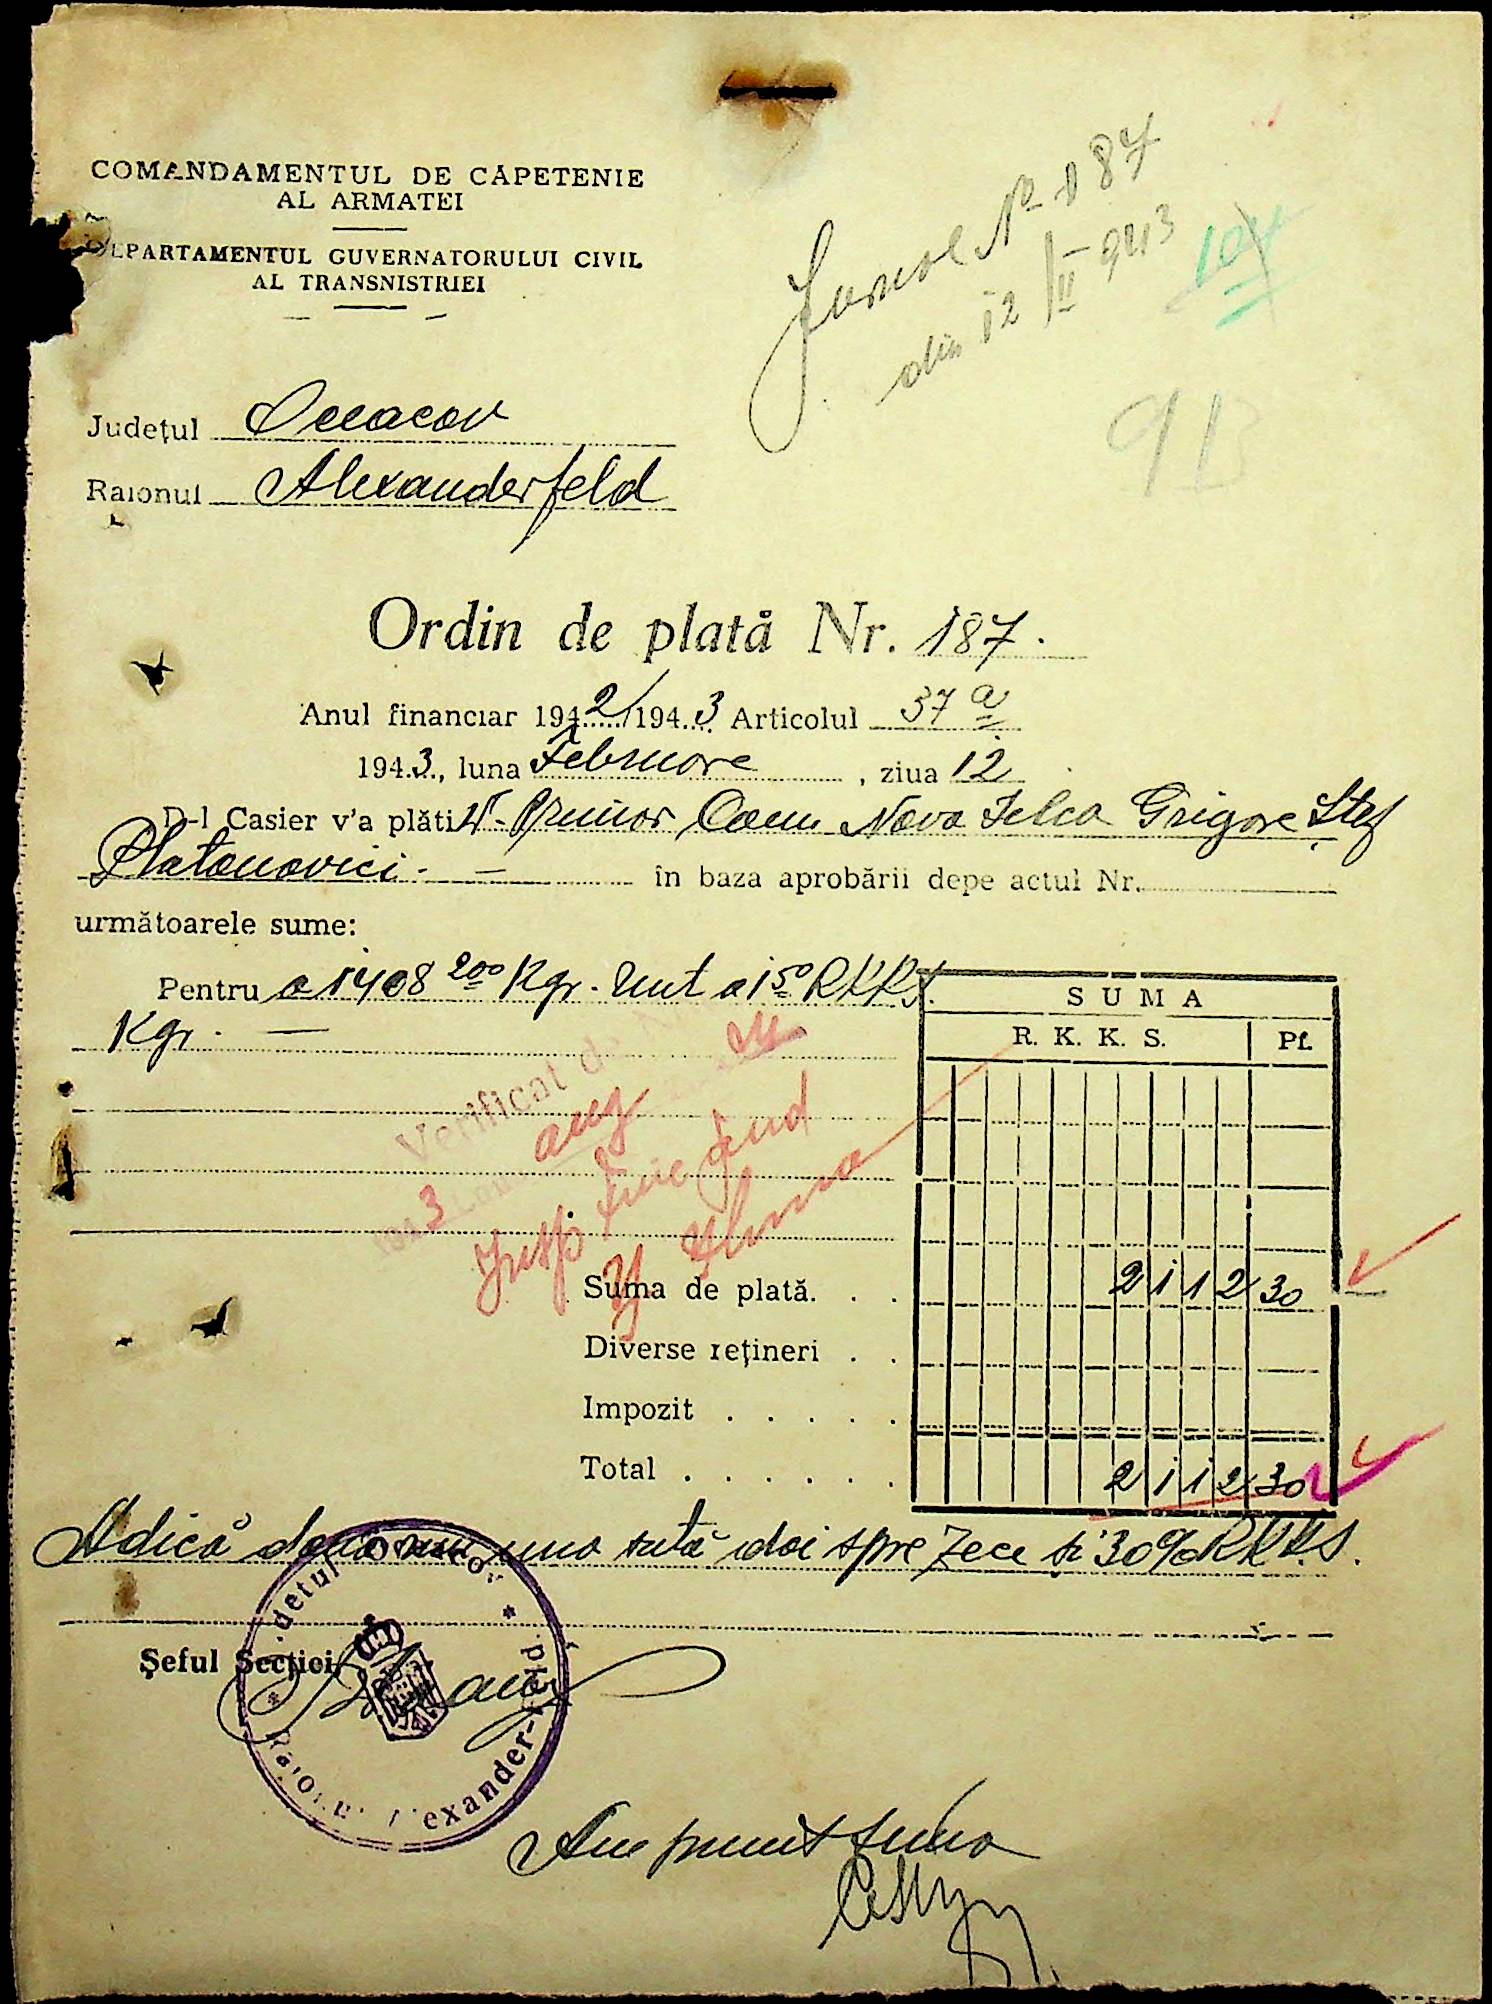 COMANDAMENTUL DE CĂPETENIE
AL ARMATEI
DEPARTAMENTUL GUVERNATORULUI CIVIL
AL TRANSNISTRIEI
Jurnal No 187
din 12/II 943
104
913
Județul Oceacov
Raionul Alexanderfeld
Ordin de plată Nr. 187.
Anul financiar 1942/1943 Articolul 37 a
1943, luna Februore, ziua 12
D-l Casier v'a plăti Primar Com Nova Felca Grigore Ștef
Platonovici. - în baza aprobării depe actul Nr.
următoarele sume:
Pentru a 1408 200 Kgr. Unt a 1 50 RKKS.
Kgr. —
SUMA
R. K. K. S. Pf.
Verificat de
1943 Luna aug
Suma de plată. . . 2112 30
Diverse rețineri . .
Impozit . . . . .
Total . . . . . . 2112 30
Adică două mii una sută doi spre zece și 30% RKKS.
Șeful Secției
Județul Oceacov * Raionul Alexander-feld *
Am primit suma